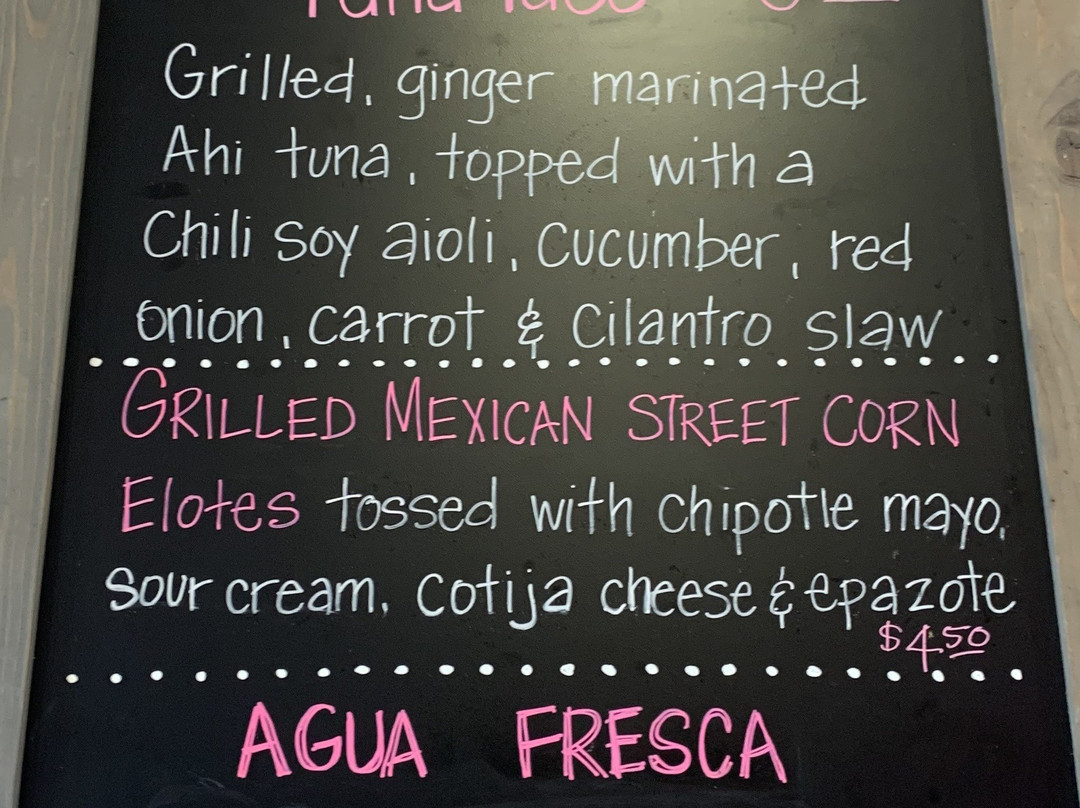 Tuna Taco
Grilled, ginger marinated
Ahi tuna, topped with a
Chili soy aioli, cucumber, red
onion, carrot & Cilantro slaw
GRILLED MEXICAN STREET CORN
Elotes tossed with chipotle mayo,
Sour cream, cotija cheese & epazote
$4.50
AGUA FRESCA